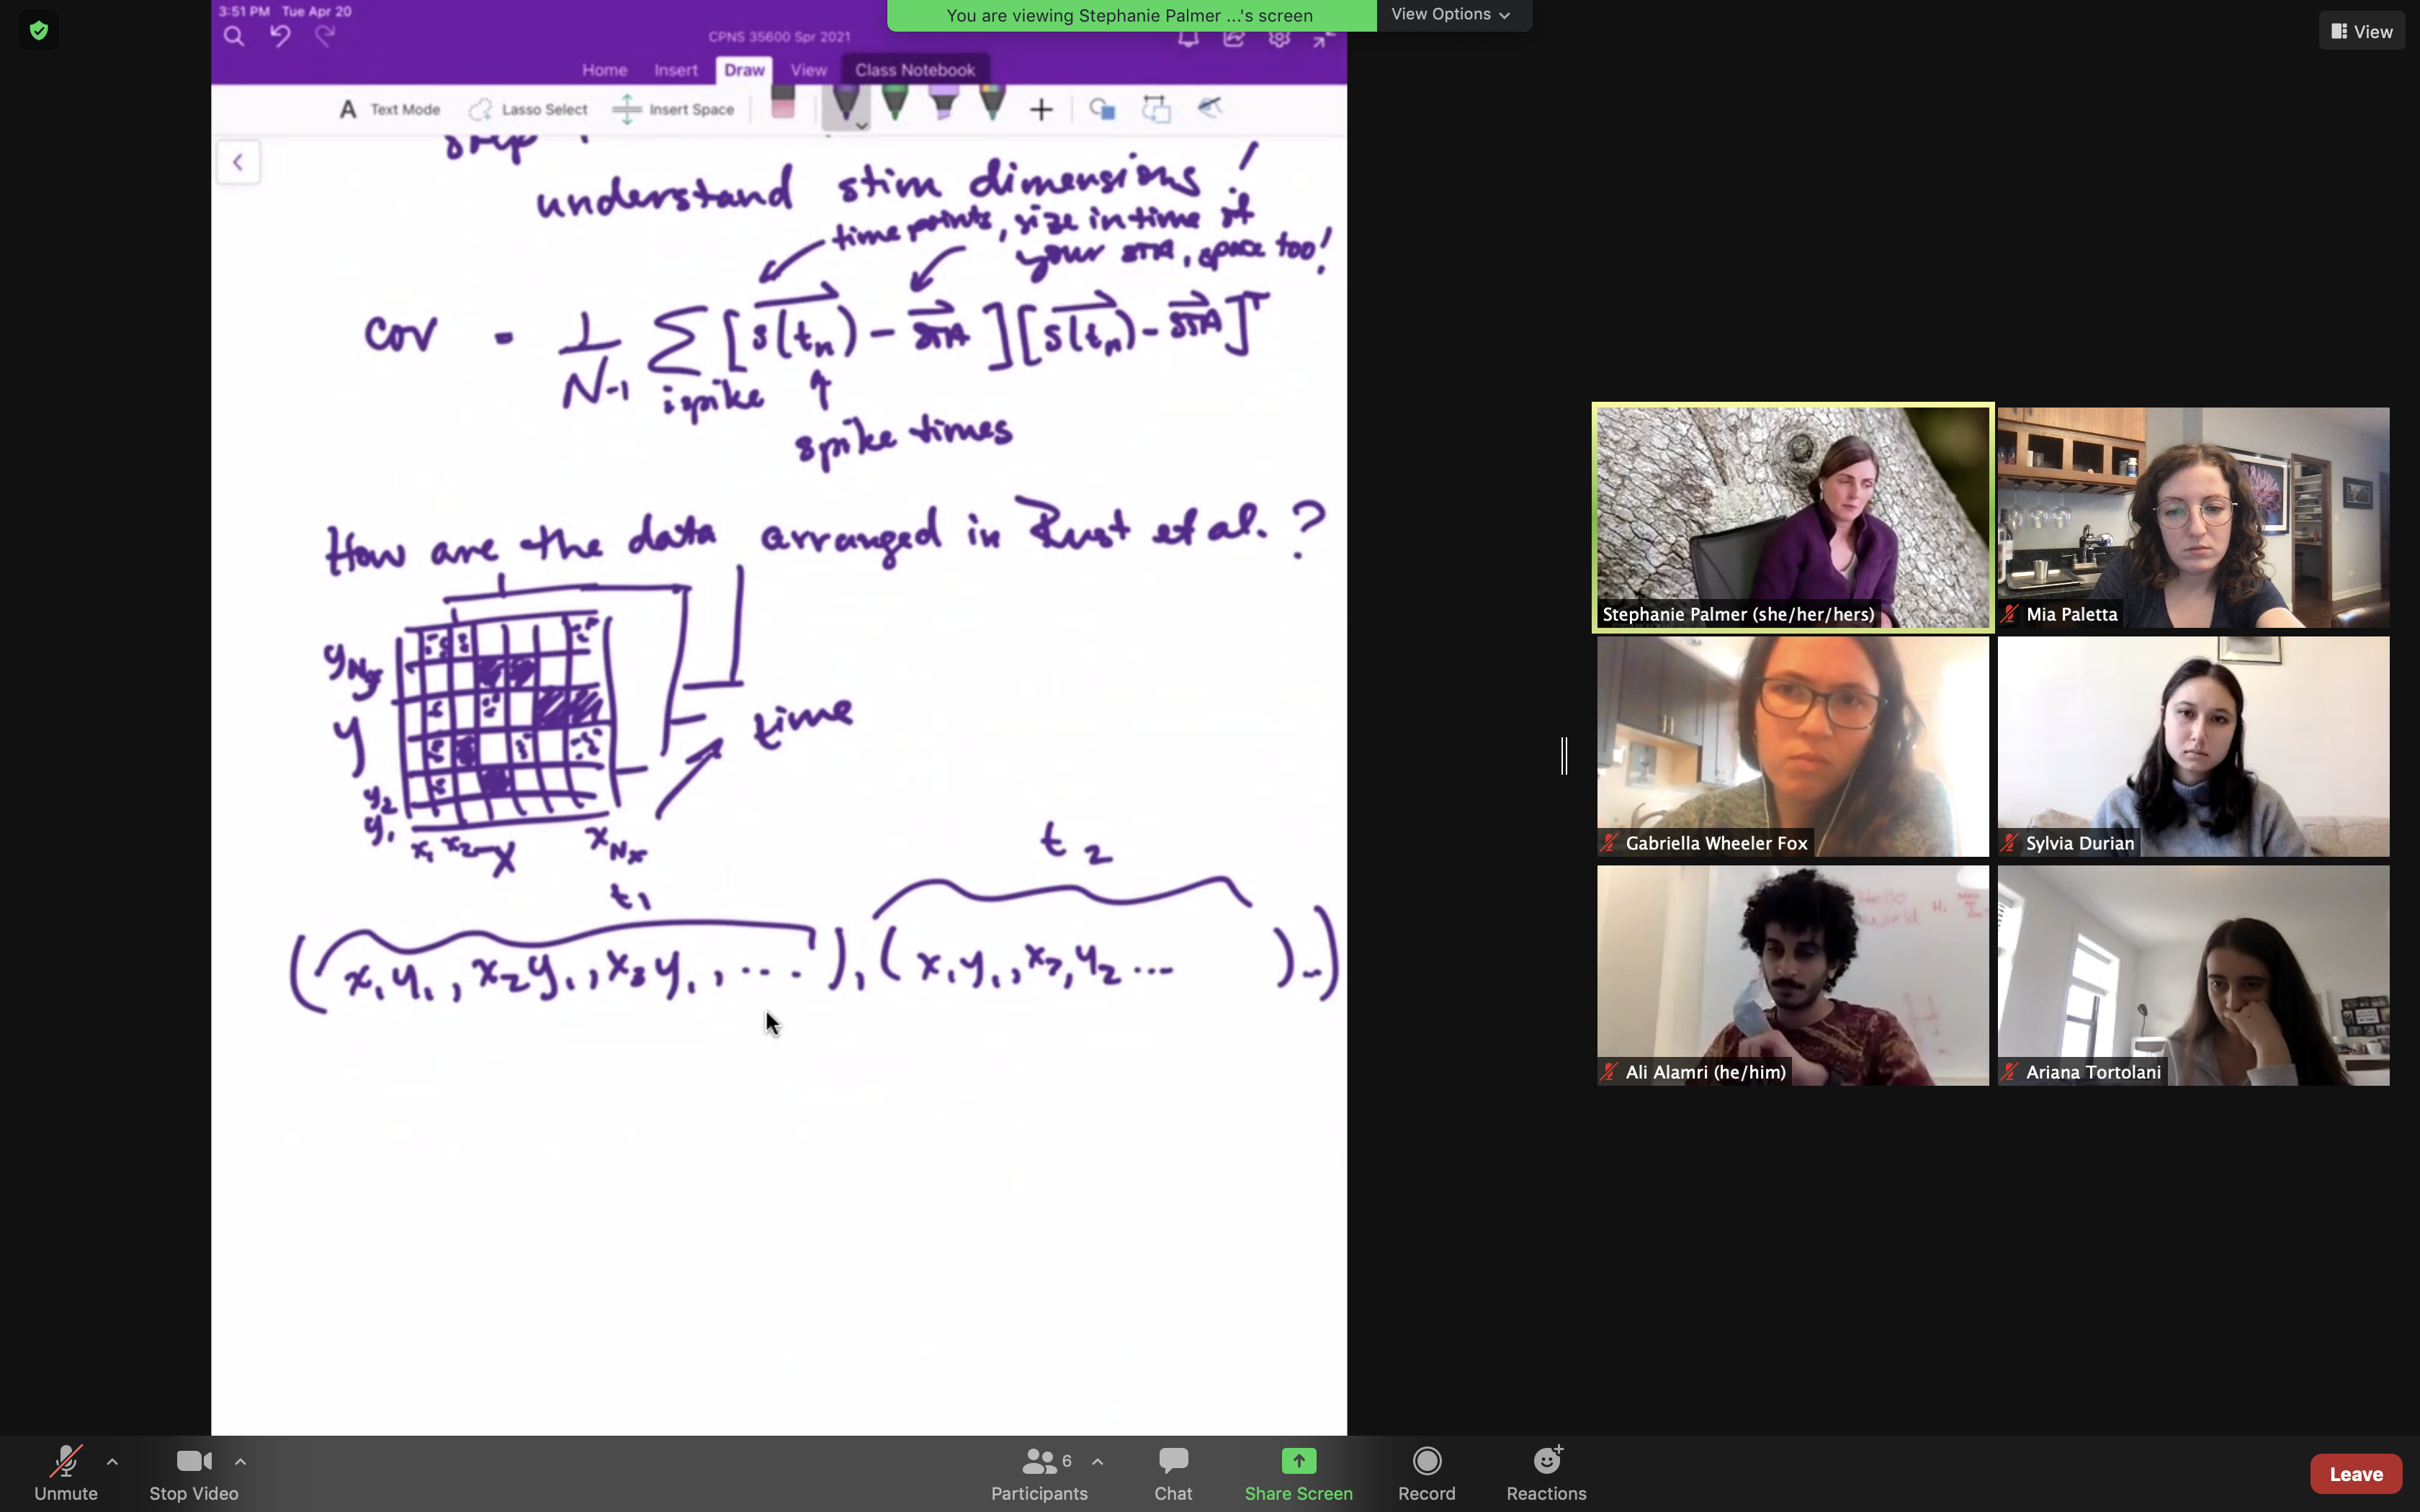 3:51 PM Tue Apr 20
You are viewing Stephanie Palmer ...'s screen
View Options
View
CPNS 35600 Spr 2021
Home Insert Draw View Class Notebook
A Text Mode Lasso Select Insert Space
step
understand stim dimensions!
time points, size in time of
your STA, space too!
Cov = 1/N-1 Σ [s(tn) - STA][s(tn) - STA]T
ispike
spike times
How are the data arranged in Rust et al.?
yNy
y
y2
y1
x1 x2 x xNx
time
t1
t2
(x1y1, x2y1, x3y1, ....), (x1y1, x2, y2 ... )..)
Stephanie Palmer (she/her/hers)
Mia Paletta
Gabriella Wheeler Fox
Sylvia Durian
Hello
World Hi
Ali Alamri (he/him)
Ariana Tortolani
6
Unmute
Stop Video
Participants
Chat
Share Screen
Record
Reactions
Leave